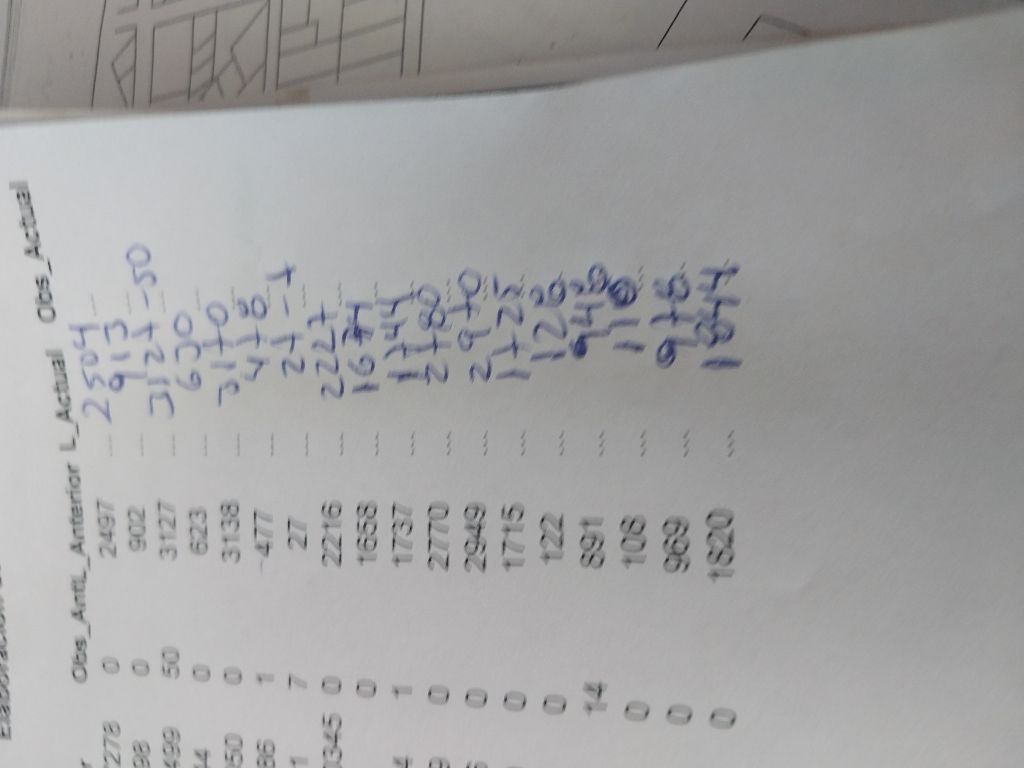 Obs_Ant L_Anterior L_Actual Obs_Actual
278 0 2497 2504
98 0 902 913
499 50 3127 3127-50
44 0 623 630
050 0 3138 3170
86 1 477 478
1 7 27 27-7
0345 0 2216 2227
0 1658 1674
4 1 1737 1744
9 0 2770 2780
0 2949 2970
0 1715 1725
0 122
14 891
0 108
0 969 976
0 1820 1844